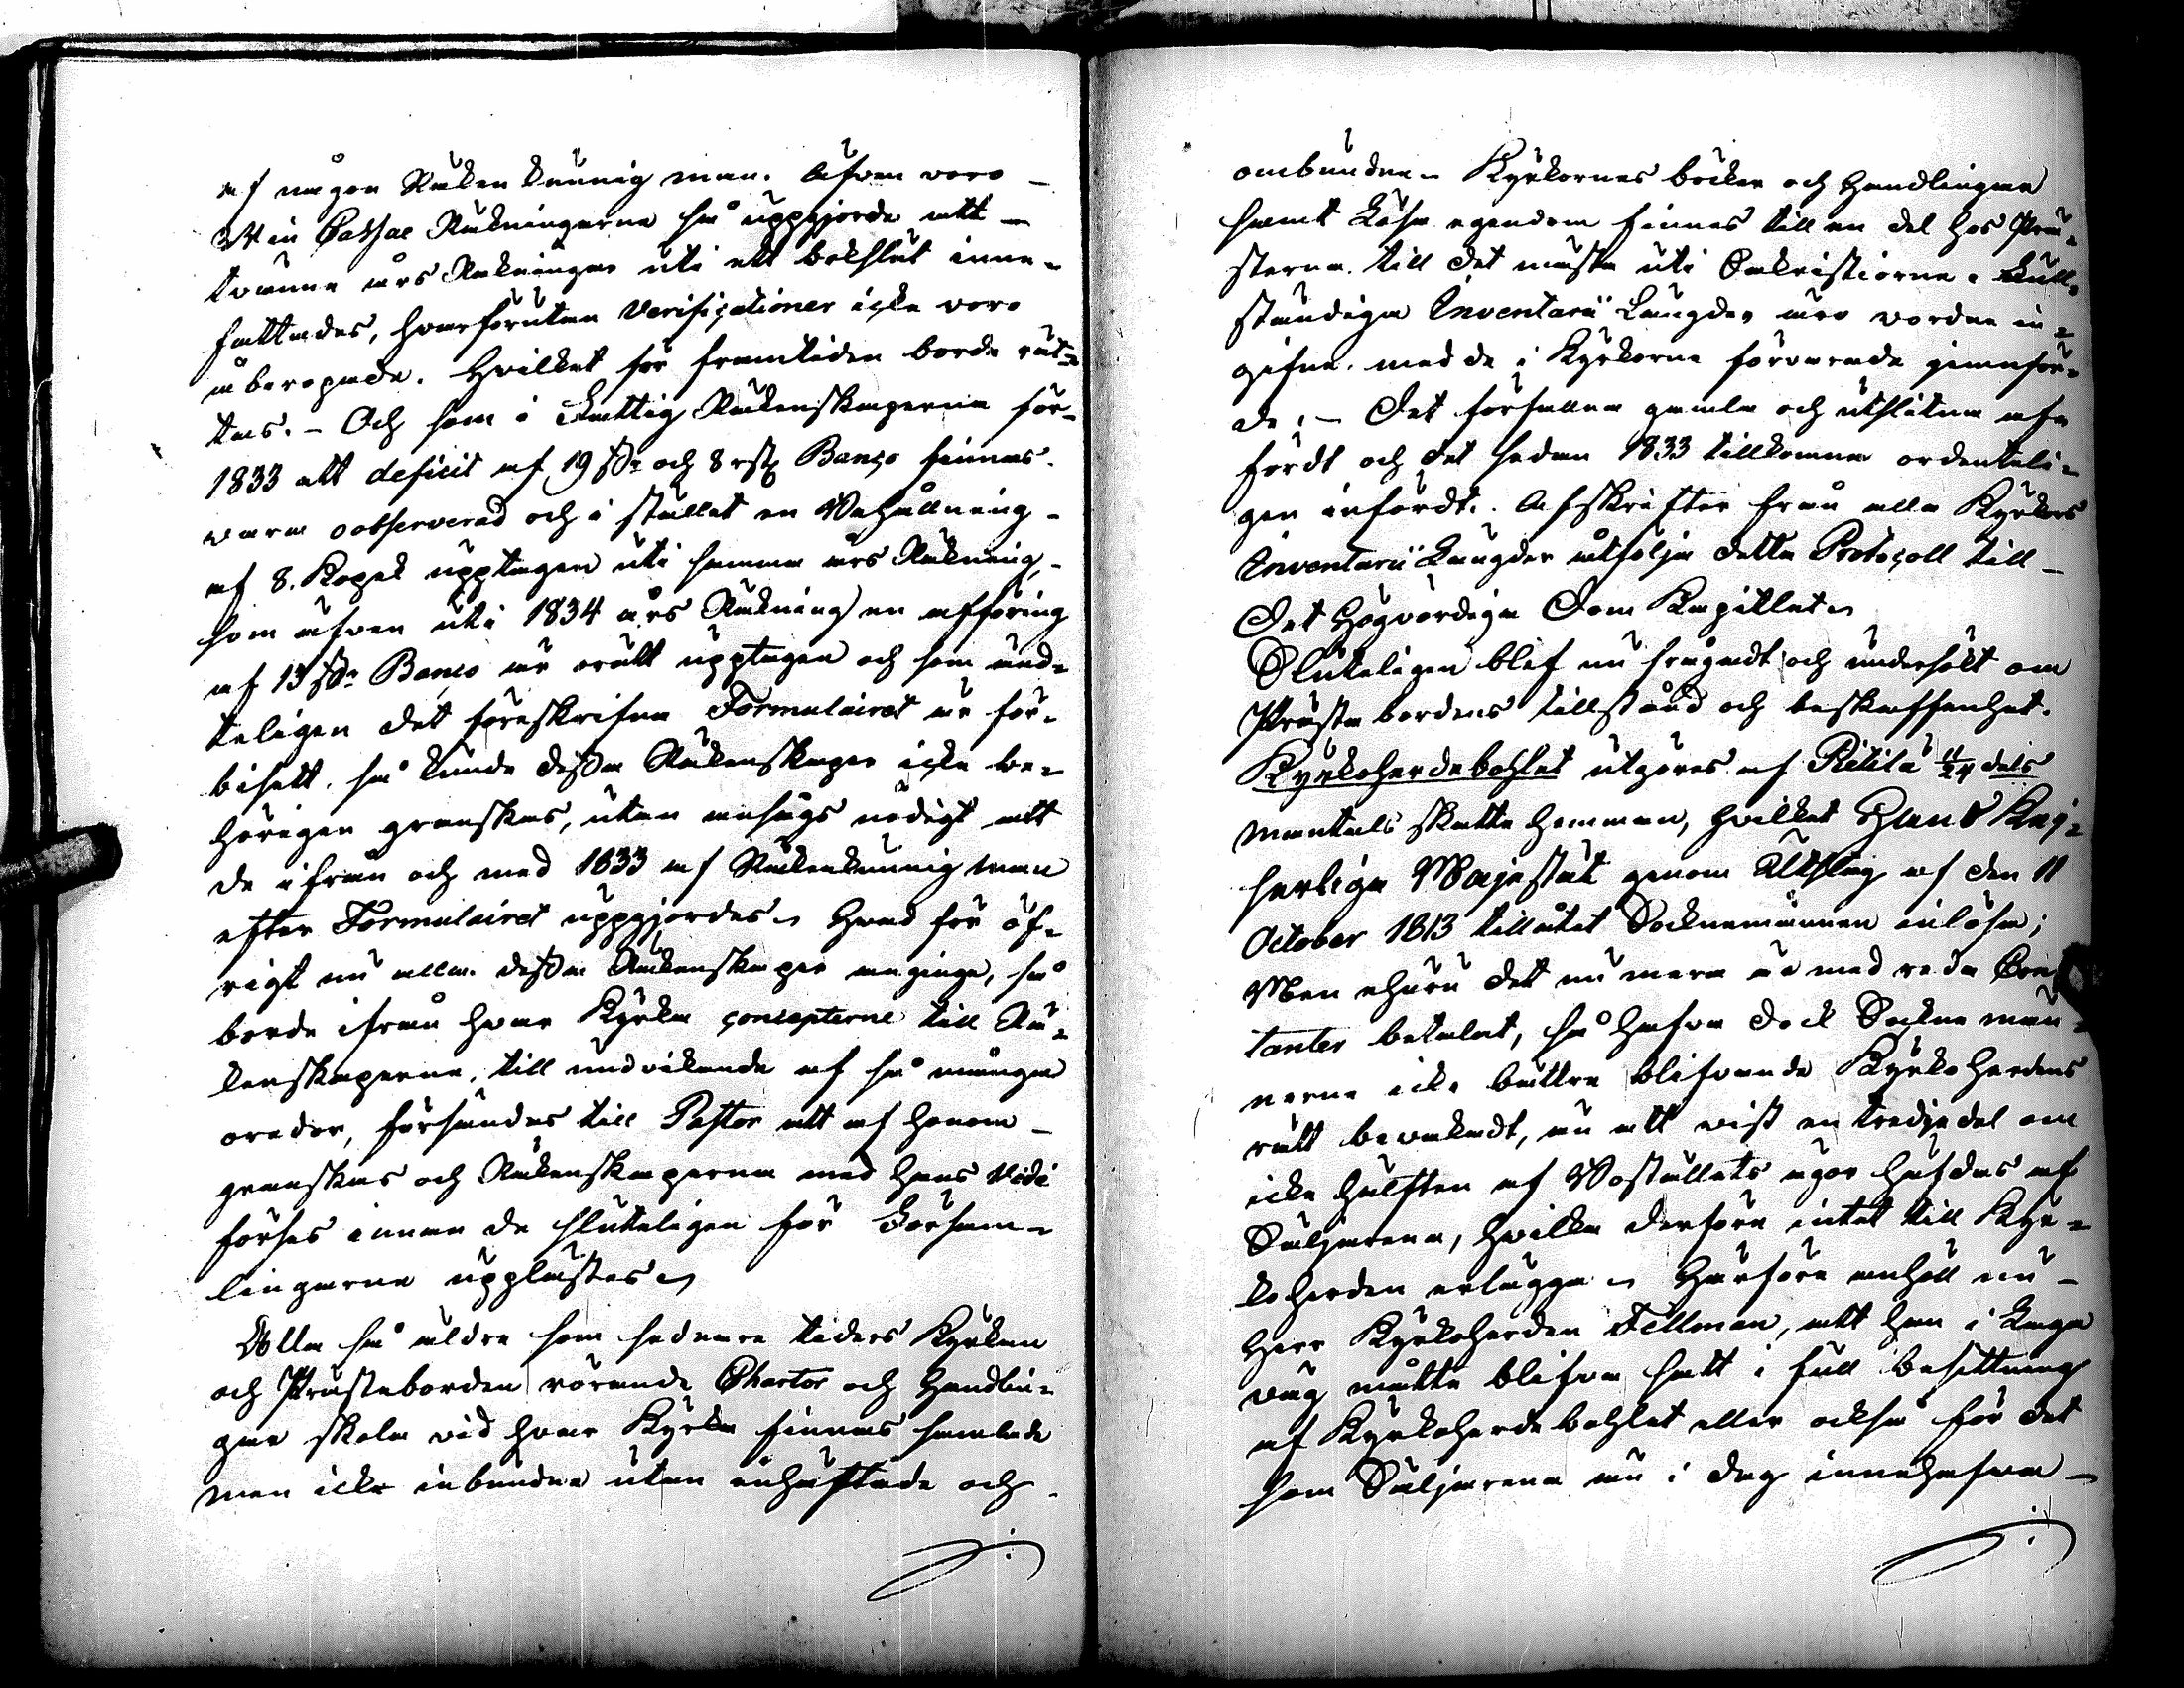 af någon Räkenkunnig man. Äfven voro
Win Cassae Räkningarne så uppgjorde att
tvänne års Räkningar uti ett bokslut inne-
fattades, hvarförutan Verificationer icke voro
åberopade. Hvilket för framtiden borde rät-
tas. – Och som i Fattig Räkenskaperne för
1833 ett deficit af 19 och 8 Banco finnes
vara oobserverad och i stället en Behållning
af 8. Kopek upptagen uti samma års Räkning,
som äfven uti 1834 års Räkning en afföring
af 13 Banco är orätt upptagen och som änd-
teligen det föreskrifna Formulairet är för-
bisett, så kunde dessa Räkenskaper icke be-
hörigen granskas, utan ansågs nödigt att
de ifrån och med 1833 af Räkenkunnig man
efter Formulairet uppgjordes. Hvad för öf-
rigt nu alla dessa Räkenskaper angingo, så
borde ifrån hvar Kyrka concepterne till Rä-
kenskaperne, till undvikande af så många
oredor, försändas till Pastor att af honom
granskas och Räkenskaperna med hans Vidi
förses innan de sluteligen för Försam-
lingarne upplästes.
Alla så äldre som sednare tiders Kyrkan
och Prästeborden rörande Chartor och Handlin-
gar skola vid hvar Kyrka finnas samlade
men icke inbundne utan enhäftade och
ombundne. Kyrkornes böcker och Handlingar
samt Lösa egendom finnes till en del hos Prä-
sterne till det mästa uti Sakristiorne. Full-
ständiga Inventarii Längder äro vordne in-
gifne. med de i Kyrkorne förvarade jemnför-
de. – Det försedda gamla och utslitna af-
fördt och det sedan 1833 tillkomna ordenteli-
gen infördt. Afskrifter från alla Kyrkors
Inventarii Längder åtfölja detta Protocoll till
Det Högvördiga Dom Kapitlet.
Sluteligen blef nu frågadt och undersökt om
Prästebordens tillstånd och beskaffenhet.
Kyrkoherdebohlet utgöres af Pitilä 11/24 dels
mantals skatte hemman, hvilket Hans Kej-
serliga Majestät genom Utslag af den 11
October 1813 tillåtet Socknemännen inlösa;
Men ehuru det nu mera är med reda Con-
tanter betalat, så hafva dock Sockne män-
nerne icke bättre blifvande Kyrkoherdens
rätt bevakadt, än att visst en tredjedel om
icke hälften af Boställets egor häfdas af
Säljarena, hvilka derföre intet till Kyr-
koherden erlägga. Härföre anhöll nu
Herr Kyrkoherden Fellman, att han i Laga
väg måtte blifva satt i full besittning
af Kyrkoherdebohlet eller också för det
som Säljarena än i dag innehafva